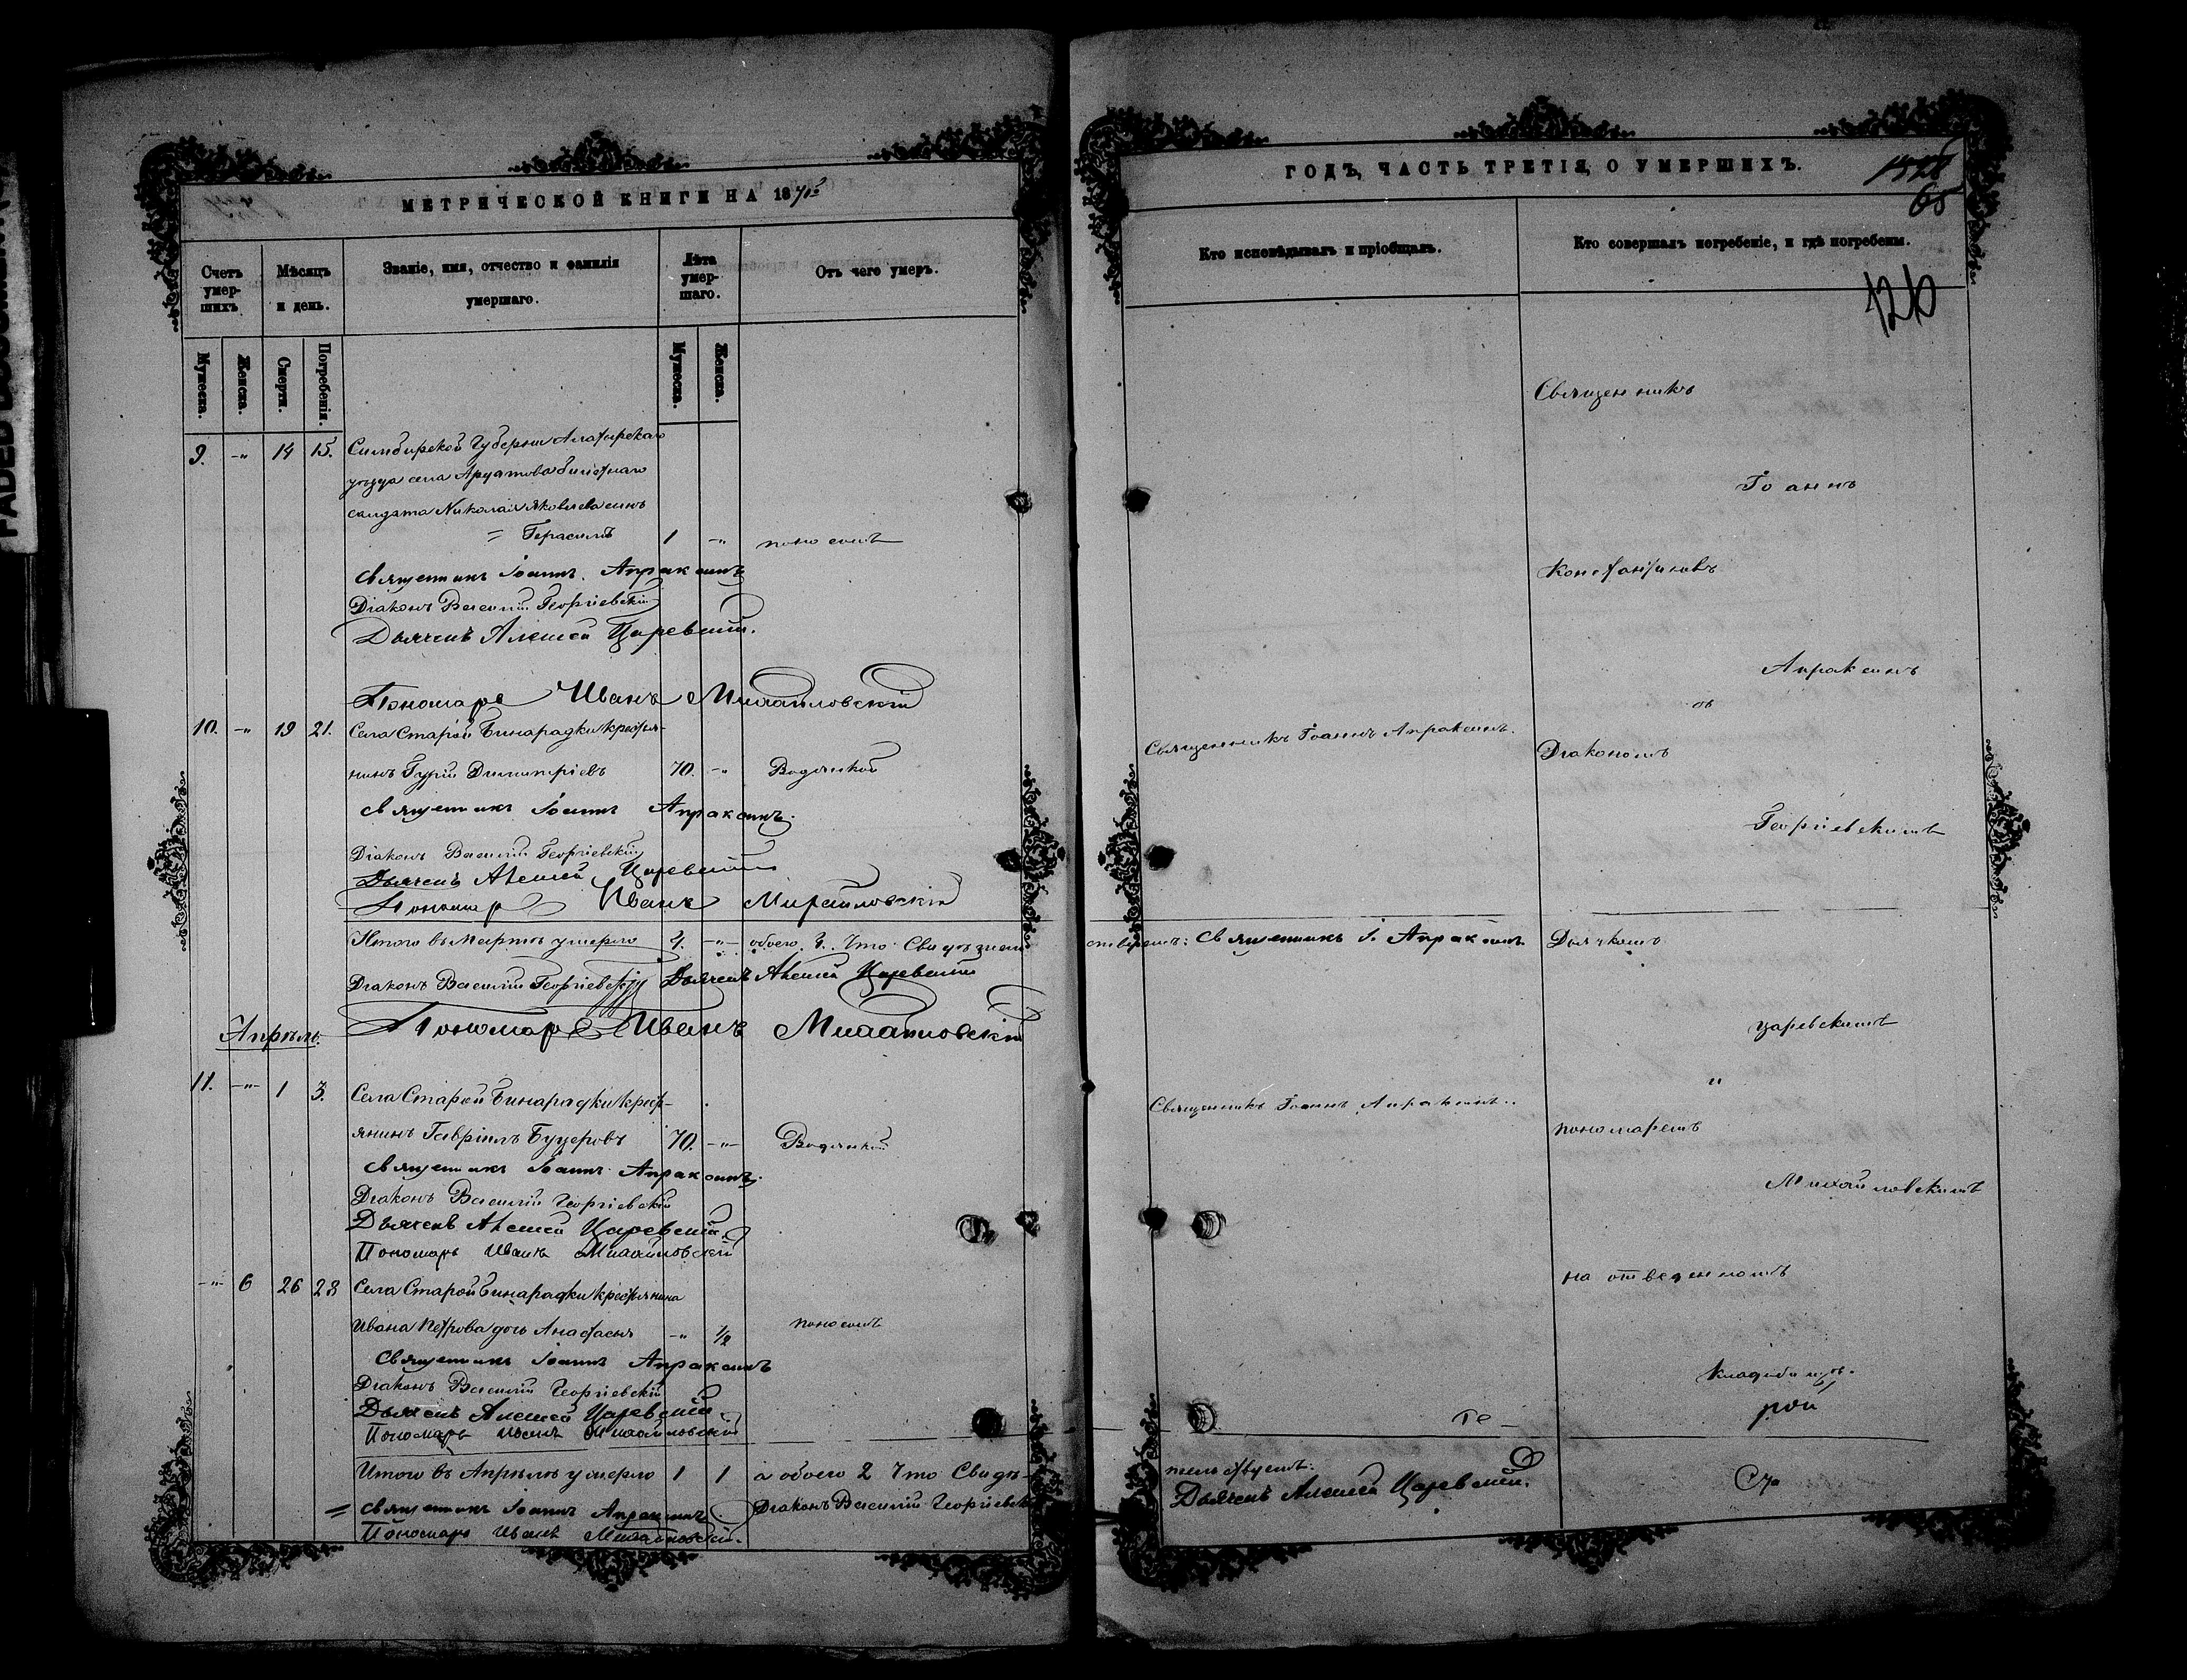 МЕТРИЧЕСКОЙ КНИГИ НА 187
Счетъ умер-шихъ
Мѣсяцъ и день.
Званіе, имя, отчество и фамилія умершаго.
Лѣта умер-шаго.
Отъ чего умеръ.
Мужеска.
Женска.
Смерти.
Погребенія.
Мужеска.
Женска.
9. -"- 14 15. Симбирской Губерніи Алатырскаго
уѣзда села Аратова билетнаго
салдата Николая Яковлева сынъ
= Герасимъ 1 -"- поносомъ
Священникъ Іоаннъ Апраксинъ
Діаконъ Василій Георгіевскій
Дьячекъ Алексей Царевскій.
Пономарь Иванъ Михайловскій
10. -"- 19 21. Села Старой Бинарадки крестья-
нинъ Гурій Димитріевъ 70. -"- Водянкой
Священникъ Іоаннъ Апраксинъ.
Діаконъ Василій Георгіевскій
Дьячекъ Алексей Царевскій
Пономарь Иванъ Михайловскій
Итого въ Мартѣ умерло -"- обоего Что Свидѣтель
Діаконъ Василій Георгіевскій Дьячекъ Алексей Царевскій
Пономарь Иванъ Михайловскій
Апрѣль.
11. -"- 1 3. Села Старой Бинарадки крест-
янинъ Гавріилъ Буцеровъ 70. -"- Водянкой
Священникъ Іоаннъ Апраксинъ.
Діаконъ Василій Георгіевскій
Дьячекъ Алексей Царевскій
Пономарь Иванъ Михайловскій
-"- 6 26 28 Села Старой Бинарадки крестьянина
Ивана Петрова дочь Анастасья -"- поносомъ
Священникъ Іоаннъ Апраксинъ
Діаконъ Василій Георгіевскій
Дьячекъ Алексей Царевскій
Пономарь Иванъ Михайловскій
Итого въ Апрѣлѣ умерло 1 1 а обоего 2 Что Свидѣ-
= Священникъ Іоаннъ Апраксинъ. Діаконъ Василій Георгіевскій
Пономарь Иванъ Михайловскій.
ГОДЪ, ЧАСТЬ ТРЕТІЯ, О УМЕРШИХЪ.
65
126
Кто исповѣдывалъ и пріобщалъ.
Кто совершалъ погребеніе, и гдѣ погребены.
Священникъ
Іоаннъ
Константиновъ
Апраксинъ
съ
Священникъ Іоаннъ Апраксинъ.
Діакономъ
Георгіевскимъ
Священникъ І. Апраксинъ Дьячкомъ
Царевскимъ
и
Священникъ Іоаннъ Апраксинъ.
пономаремъ
Михайловскимъ
на отведенномъ
кладбищѣ.
те-
рой
тельствуетъ:
Дьячекъ Алексей Царевскій.